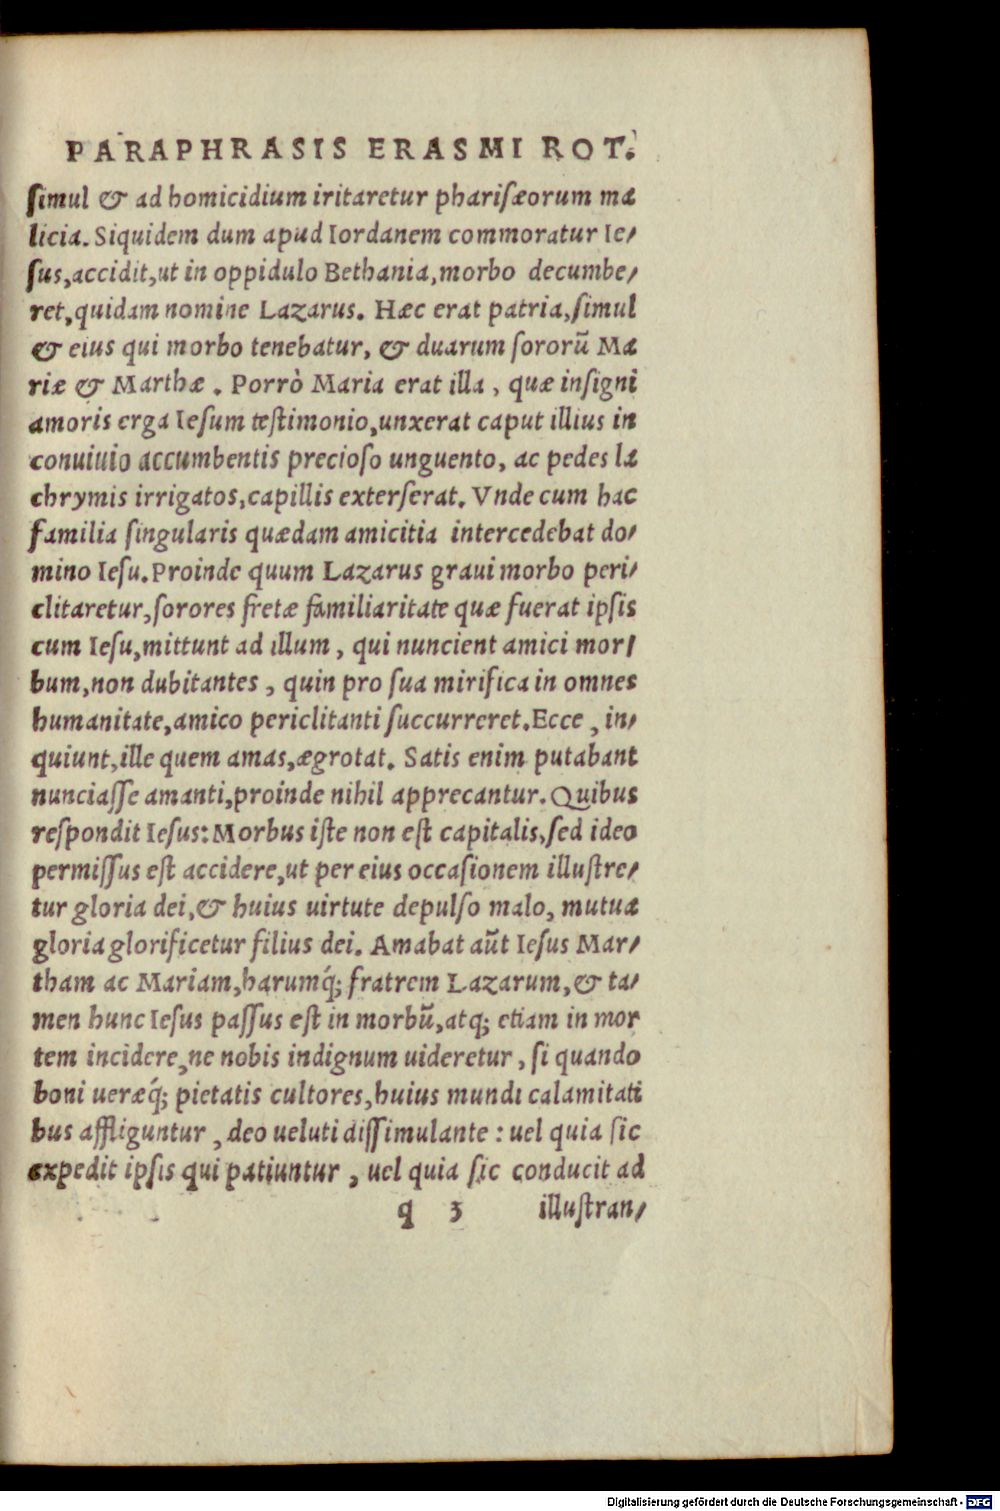 PARAPHRASIS ERASMI ROT.
ſimul & ad homicidium iritaretur phariſæorum ma
licia. Siquidem dum apud Iordanem commoratur Ie/
ſus,accidit,ut in oppidulo Bethania,morbo decumbe/
ret,quidam nomine Lazarus. Hæc erat patria,ſimul
& eius qui morbo tenebatur, & duarum ſororũ Ma
riæ & Marthæ . Porrò Maria erat illa , quæ inſigni
amoris erga Ieſum teſtimonio,unxerat caput illius in
conuiuio accumbentis precioſo unguento, ac pedes la
chrymis irrigatos,capillis exterſerat. Vnde cum hac
familia ſingularis quædam amicitia intercedebat do/
mino Ieſu.Proinde quum Lazarus graui morbo peri/
clitaretur,ſorores fretæ familiaritate quæ fuerat ipſis
cum Ieſu,mittunt ad illum , qui nuncient amici mor/
bum,non dubitantes , quin pro ſua mirifica in omnes
humanitate,amico periclitanti ſuccurreret.Ecce , in/
quiunt,ille quem amas,ægrotat. Satis enim putabant
nunciaſſe amanti,proinde nihil apprecantur. Quibus
reſpondit Ieſus:Morbus iſte non eſt capitalis,ſed ideo
permiſſus eſt accidere,ut per eius occaſionem illuſtre/
tur gloria dei,& huius uirtute depulſo malo, mutua
gloria glorificetur filius dei. Amabat aũt Ieſus Mar/
tham ac Mariam,harumq́; fratrem Lazarum,& ta/
men hunc Ieſus paſſus eſt in morbũ,atq; etiam in mor
tem incidere,ne nobis indignum uideretur , ſi quando
boni ueræq́; pietatis cultores,huius mundi calamitati
bus affliguntur , deo ueluti diſſimulante : uel quia ſic
expedit ipſis qui patiuntur , uel quia ſic conducit ad
q 3 illuſtran/
Digitalisierung gefördert durch die Deutsche Forschungsgemeinschaft - DFG